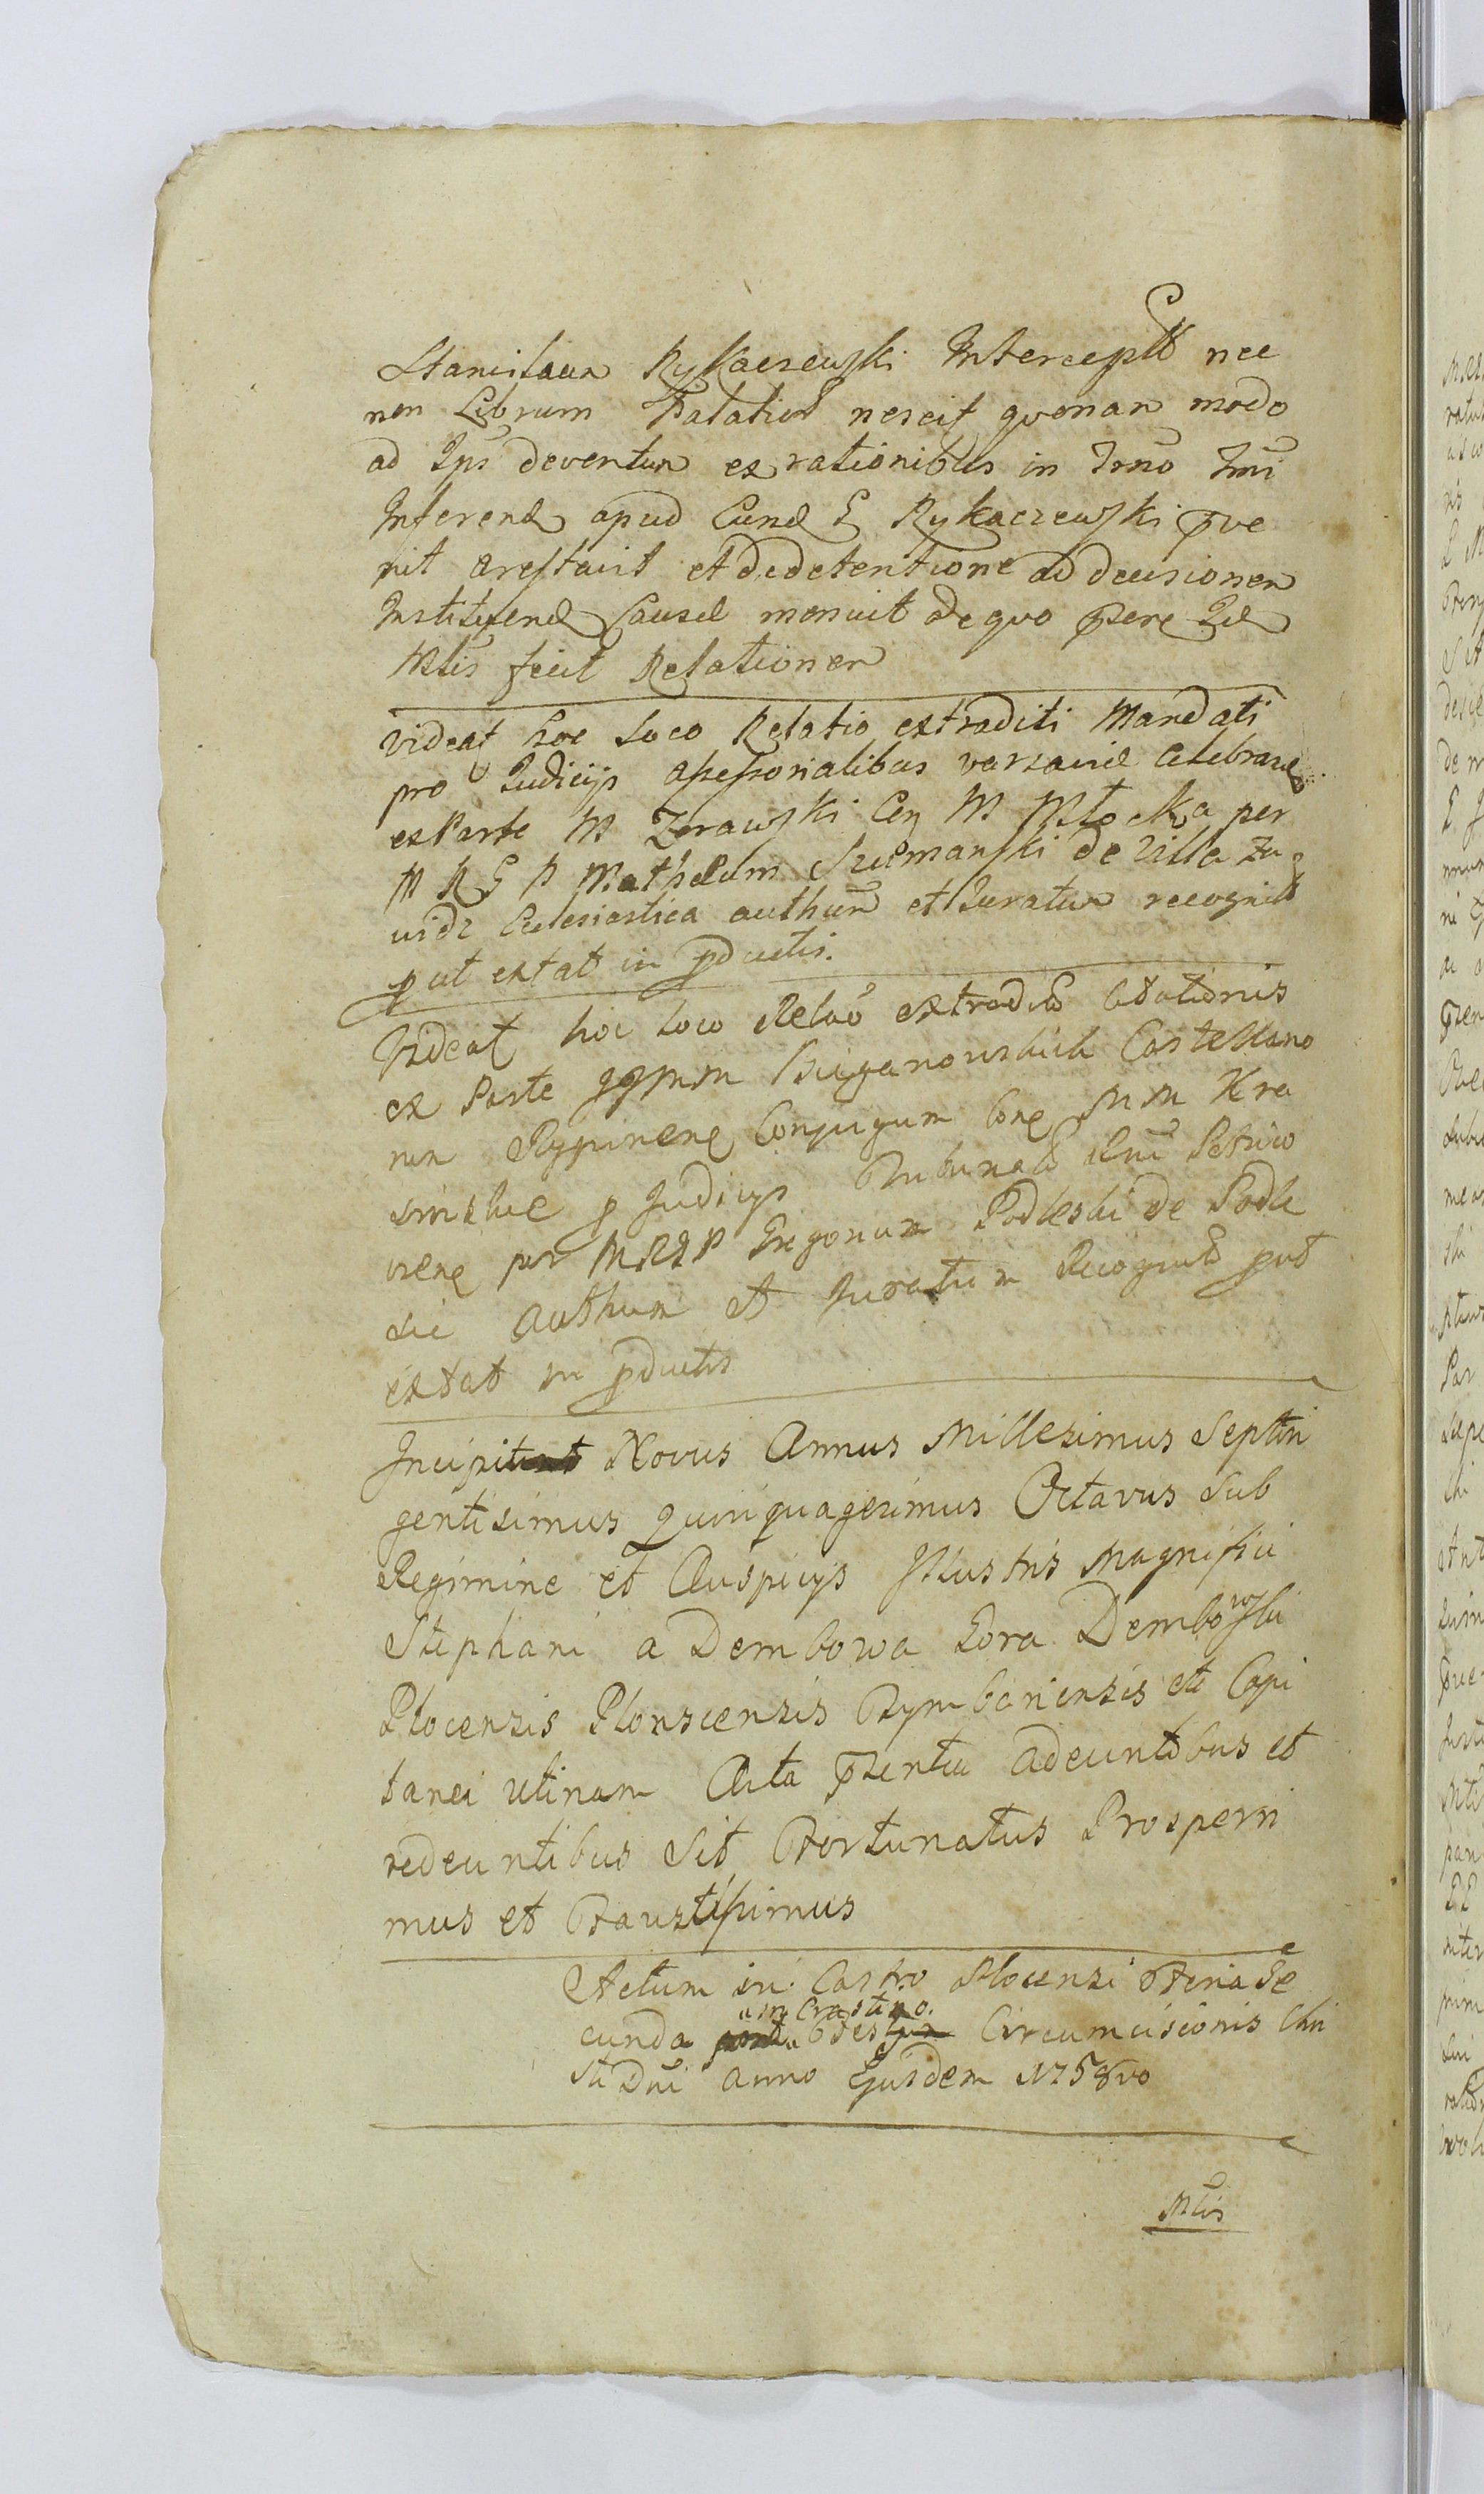 Stanislaum Rykaczewski Interceptt nec
non Librum Palatior nescit quonam modo
ad Ips deventum ex rationibus in Trno Tmi
Inferend apud Eund G Rykaczewski prve
nit arestavit et de detentione ad decisionem
Instituend Causae monuit de quo praere Id
Mltis fecit Relationem
videat hoc loco Relatio extraditi Mandati
pro Iudicijs assessorialibus varsaviae Celebrand
ex Parte M Zorawski Con M Mlocka per
M R G P Mathaeum Szumanski de villa Zu
Ecclesiastica authum et Iuratum recognitt
prut extat in pductis.
Videat hoc loco Relao extradit Citationis
ex Parte JJMM Biezanowskich Castellano
rum Rypinens Conjugum Cone MM Kra
sinskie p Judicijs Tribunalt Rni Petrico
viens per MRGP Gregorium Podleski de Podle
sie authum et Juratum Recognitt prut
extat in pductis
Incipit Novus Annus Millesimus Septin
gentisimus Quinquagesimus Octavus Sub
Regimine et Auspicijs Illustris Magnifici
Stephani a Dembowa Gora Dembowski
Plocensis Plonscensis Bymbanensis etc Capi
tanei utinam Acta prsentia adeuntibus et
redeuntibus Sit Fortunatus Prosperri
mus et Faustissimus
Actum in Castro Plocensi Feria Se
cunda in Crastino Festi Circumcisionis Chri
sti Dni anno Ejusdem 1758vo
Mltis